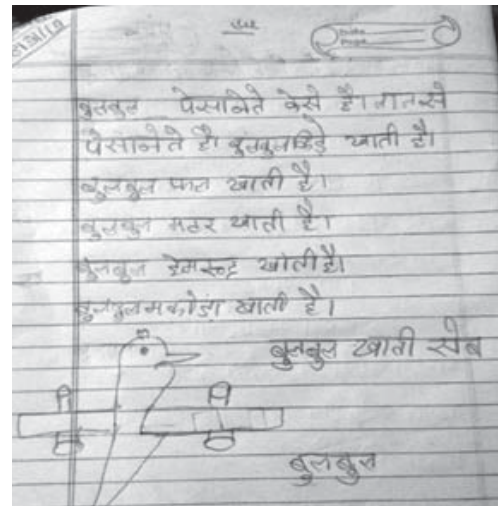 बुलबुल पेसानेते केसे है। लालसे
पेसानेते है। बुलबुलकिड़े खाती है।
बुलबुल फल खाती है।
बुलबुल मटर खाती है।
बुलबुल खाती है।
बुलबुलमकोड़ा खाती है।
बुलबुल खाती सेब
बुलबुल